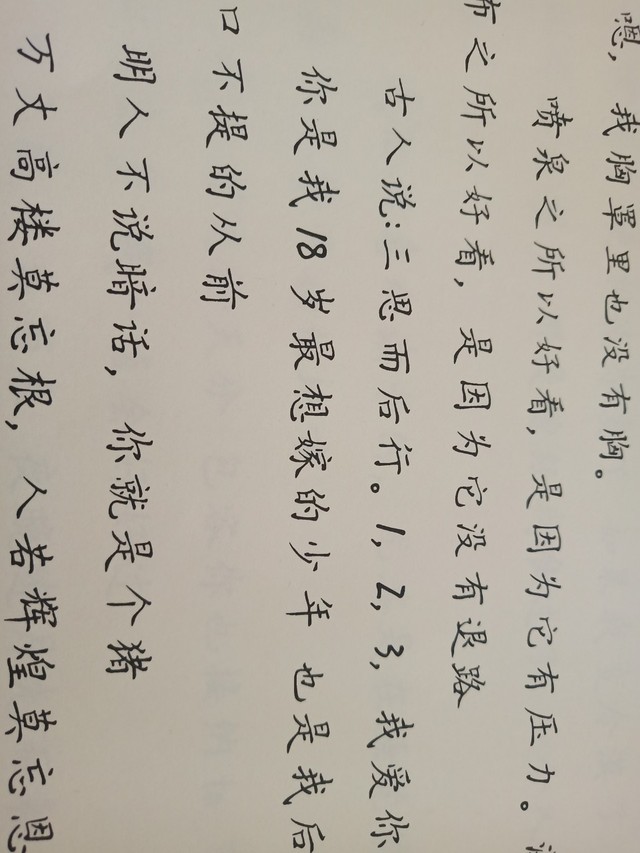 嗯，我胸罩里也没有胸。
喷泉之所以好看，是因为它有压力。
布之所以好看，是因为它没有退路
古人说：三思而后行。1，2，3，我爱你
你是我18岁最想嫁的少年 也是我后
口不提的从前
明人不说暗话，你就是个猪
万丈高楼莫忘根，人若辉煌莫忘恩